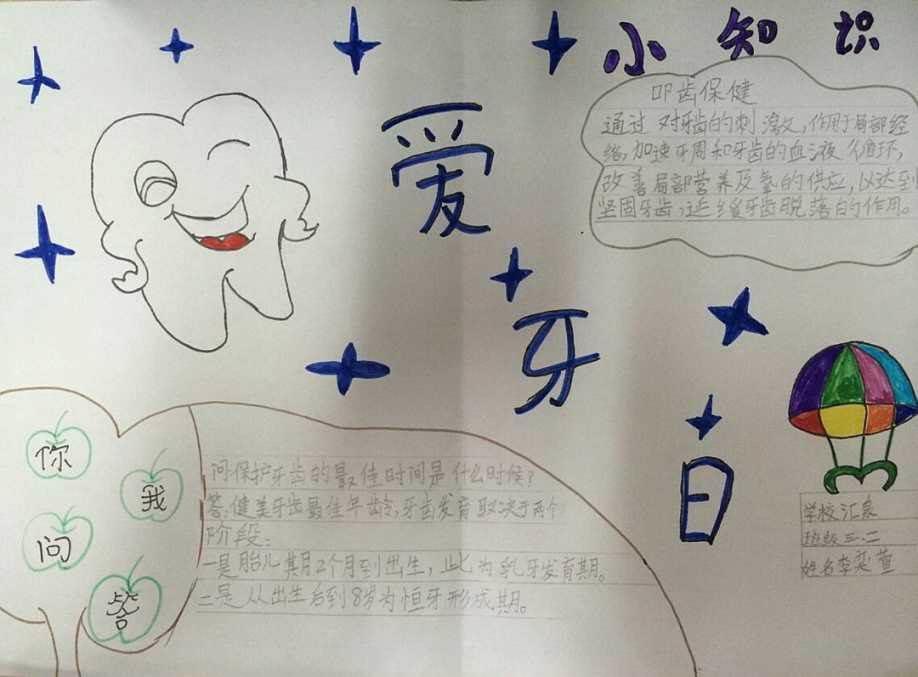 小知识
叩齿保健
通过对牙齿的刺激,作用于局部经
络,加速牙周和牙齿的血液循环,
改善局部营养及氧的供应,以达到
坚固牙齿,延缓牙齿脱落的作用。
爱
牙
日
你
我
问
答
问保护牙齿的最佳时间是什么时候?
答,健美牙齿最佳年龄,牙齿发育取决于两个
阶段:
一是胎儿期2个月到出生,此为乳牙发育期。
二是从出生后到8岁为恒牙形成期。
学校汇泉
班级三.二
姓名李奕萱